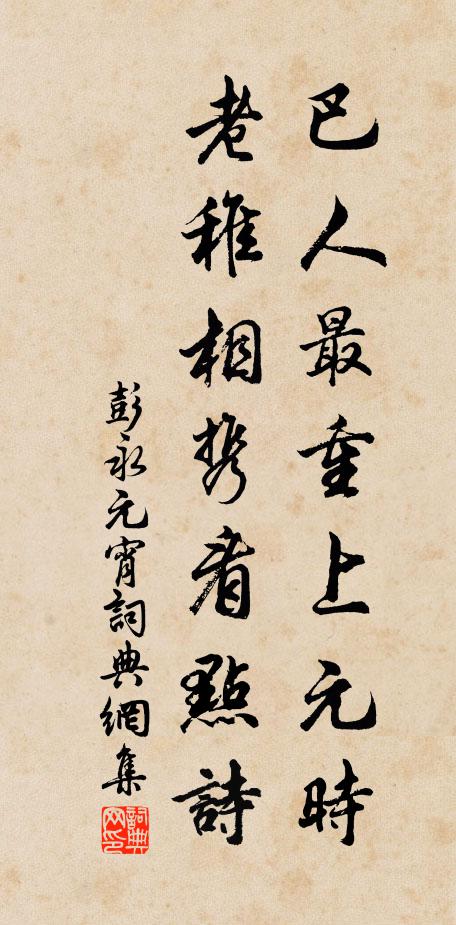 巴人最重上元時
老稚相携看點詩
彭永元宵詞典網集
詞典網印